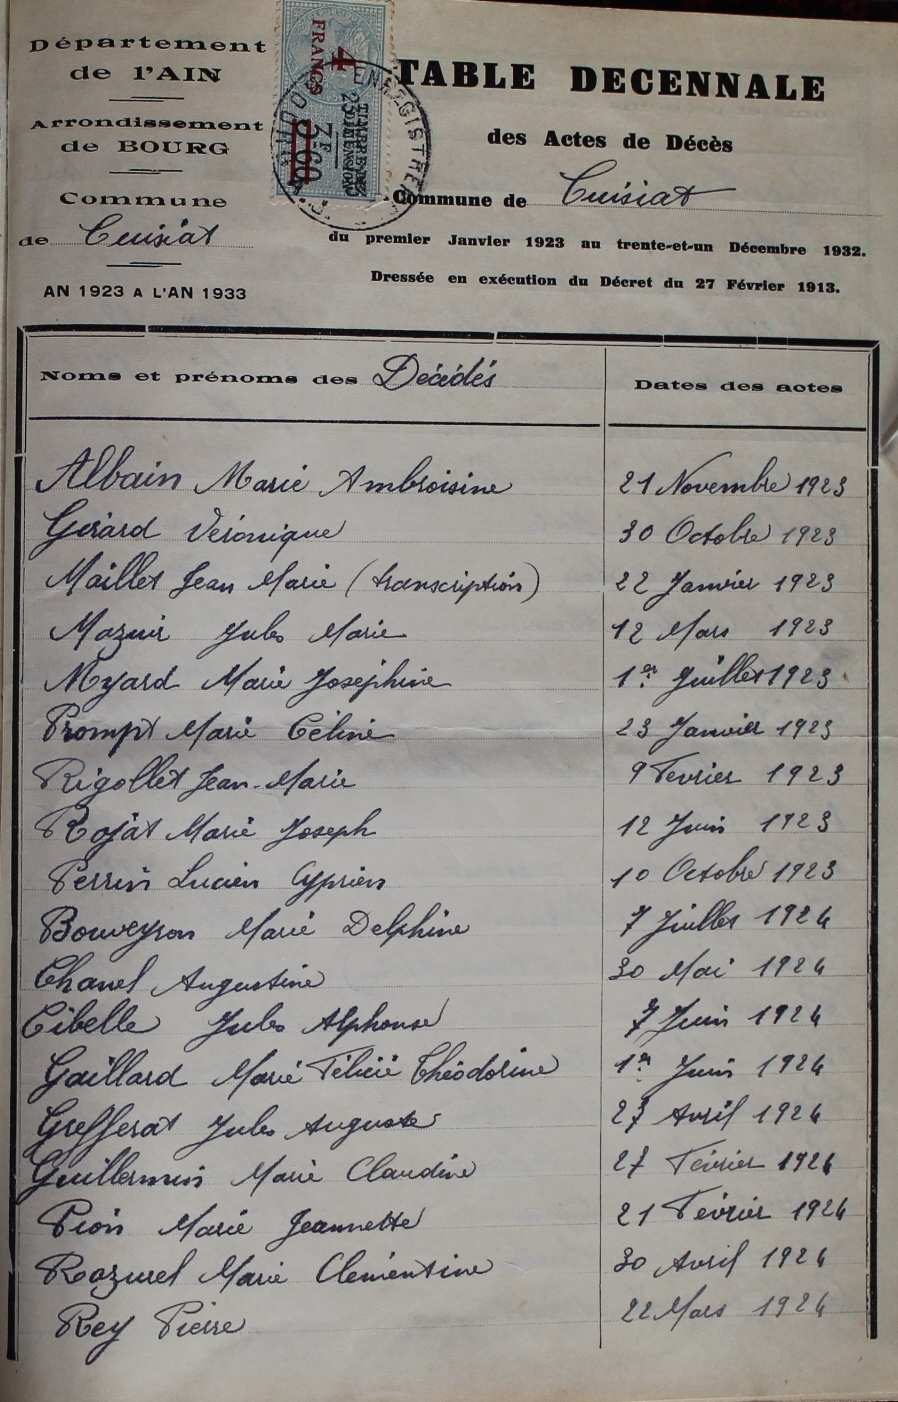 Département
de l'AIN
Arrondissement
de BOURG
Commune
de Cuisiat
AN 1923 A L'AN 1933
4
FRANCS
ENREGISTREM
TABLE DECENNALE
des Actes de Décès
Commune de Cuisiat
du premier Janvier 1923 au trente-et-un Décembre 1932.
Dressée en exécution du Décret du 27 Février 1913.
Noms et prénoms des Décédés
Dates des actes
Albain Marie Ambroisine 21 Novembre 1923
Gérard Véronique 30 Octobre 1923
Maillet Jean Marie (transcription) 22 Janvier 1923
Mazuir Jules Marie 12 Mars 1923
Myard Marie Joséphine 1er Juillet 1923
Prompt Marie Céline 23 Janvier 1923
Rigollet Jean-Marie 9 Fevrier 1923
Rojat Marie Joseph 12 Juin 1923
Perrin Lucien Cyprien 10 Octobre 1923
Bouveyron Marie Delphine 7 Juillet 1924
Chanel Augustine 30 Mai 1924
Cibelle Jules Alphonse 7 Juin 1924
Gaillard Marie Félicie Théodorine 1er Juin 1924
Grefferat Jules Auguste Avril 1924
Guillermin Marie Claudine 27 Février 1924
Pion Marie Jeannette 21 Février 1924
Rozurel Marie Clémentine 30 Avril 1924
Rey Pierre 22 Mars 1924